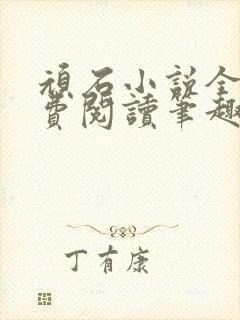 頑石小說全
費閱讀筆趣
丁有康